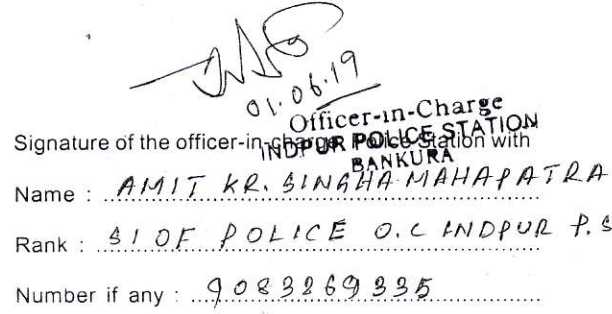 01.06.19
Officer-in-Charge
INDPUR POLICE STATION
BANKURA
Signature of the officer-in-charge Police Station with
Name : AMIT KR. SINGHA MAHAPATRA
Rank : SI OF POLICE O.C INDPUR P.S
Number if any : 9083269335